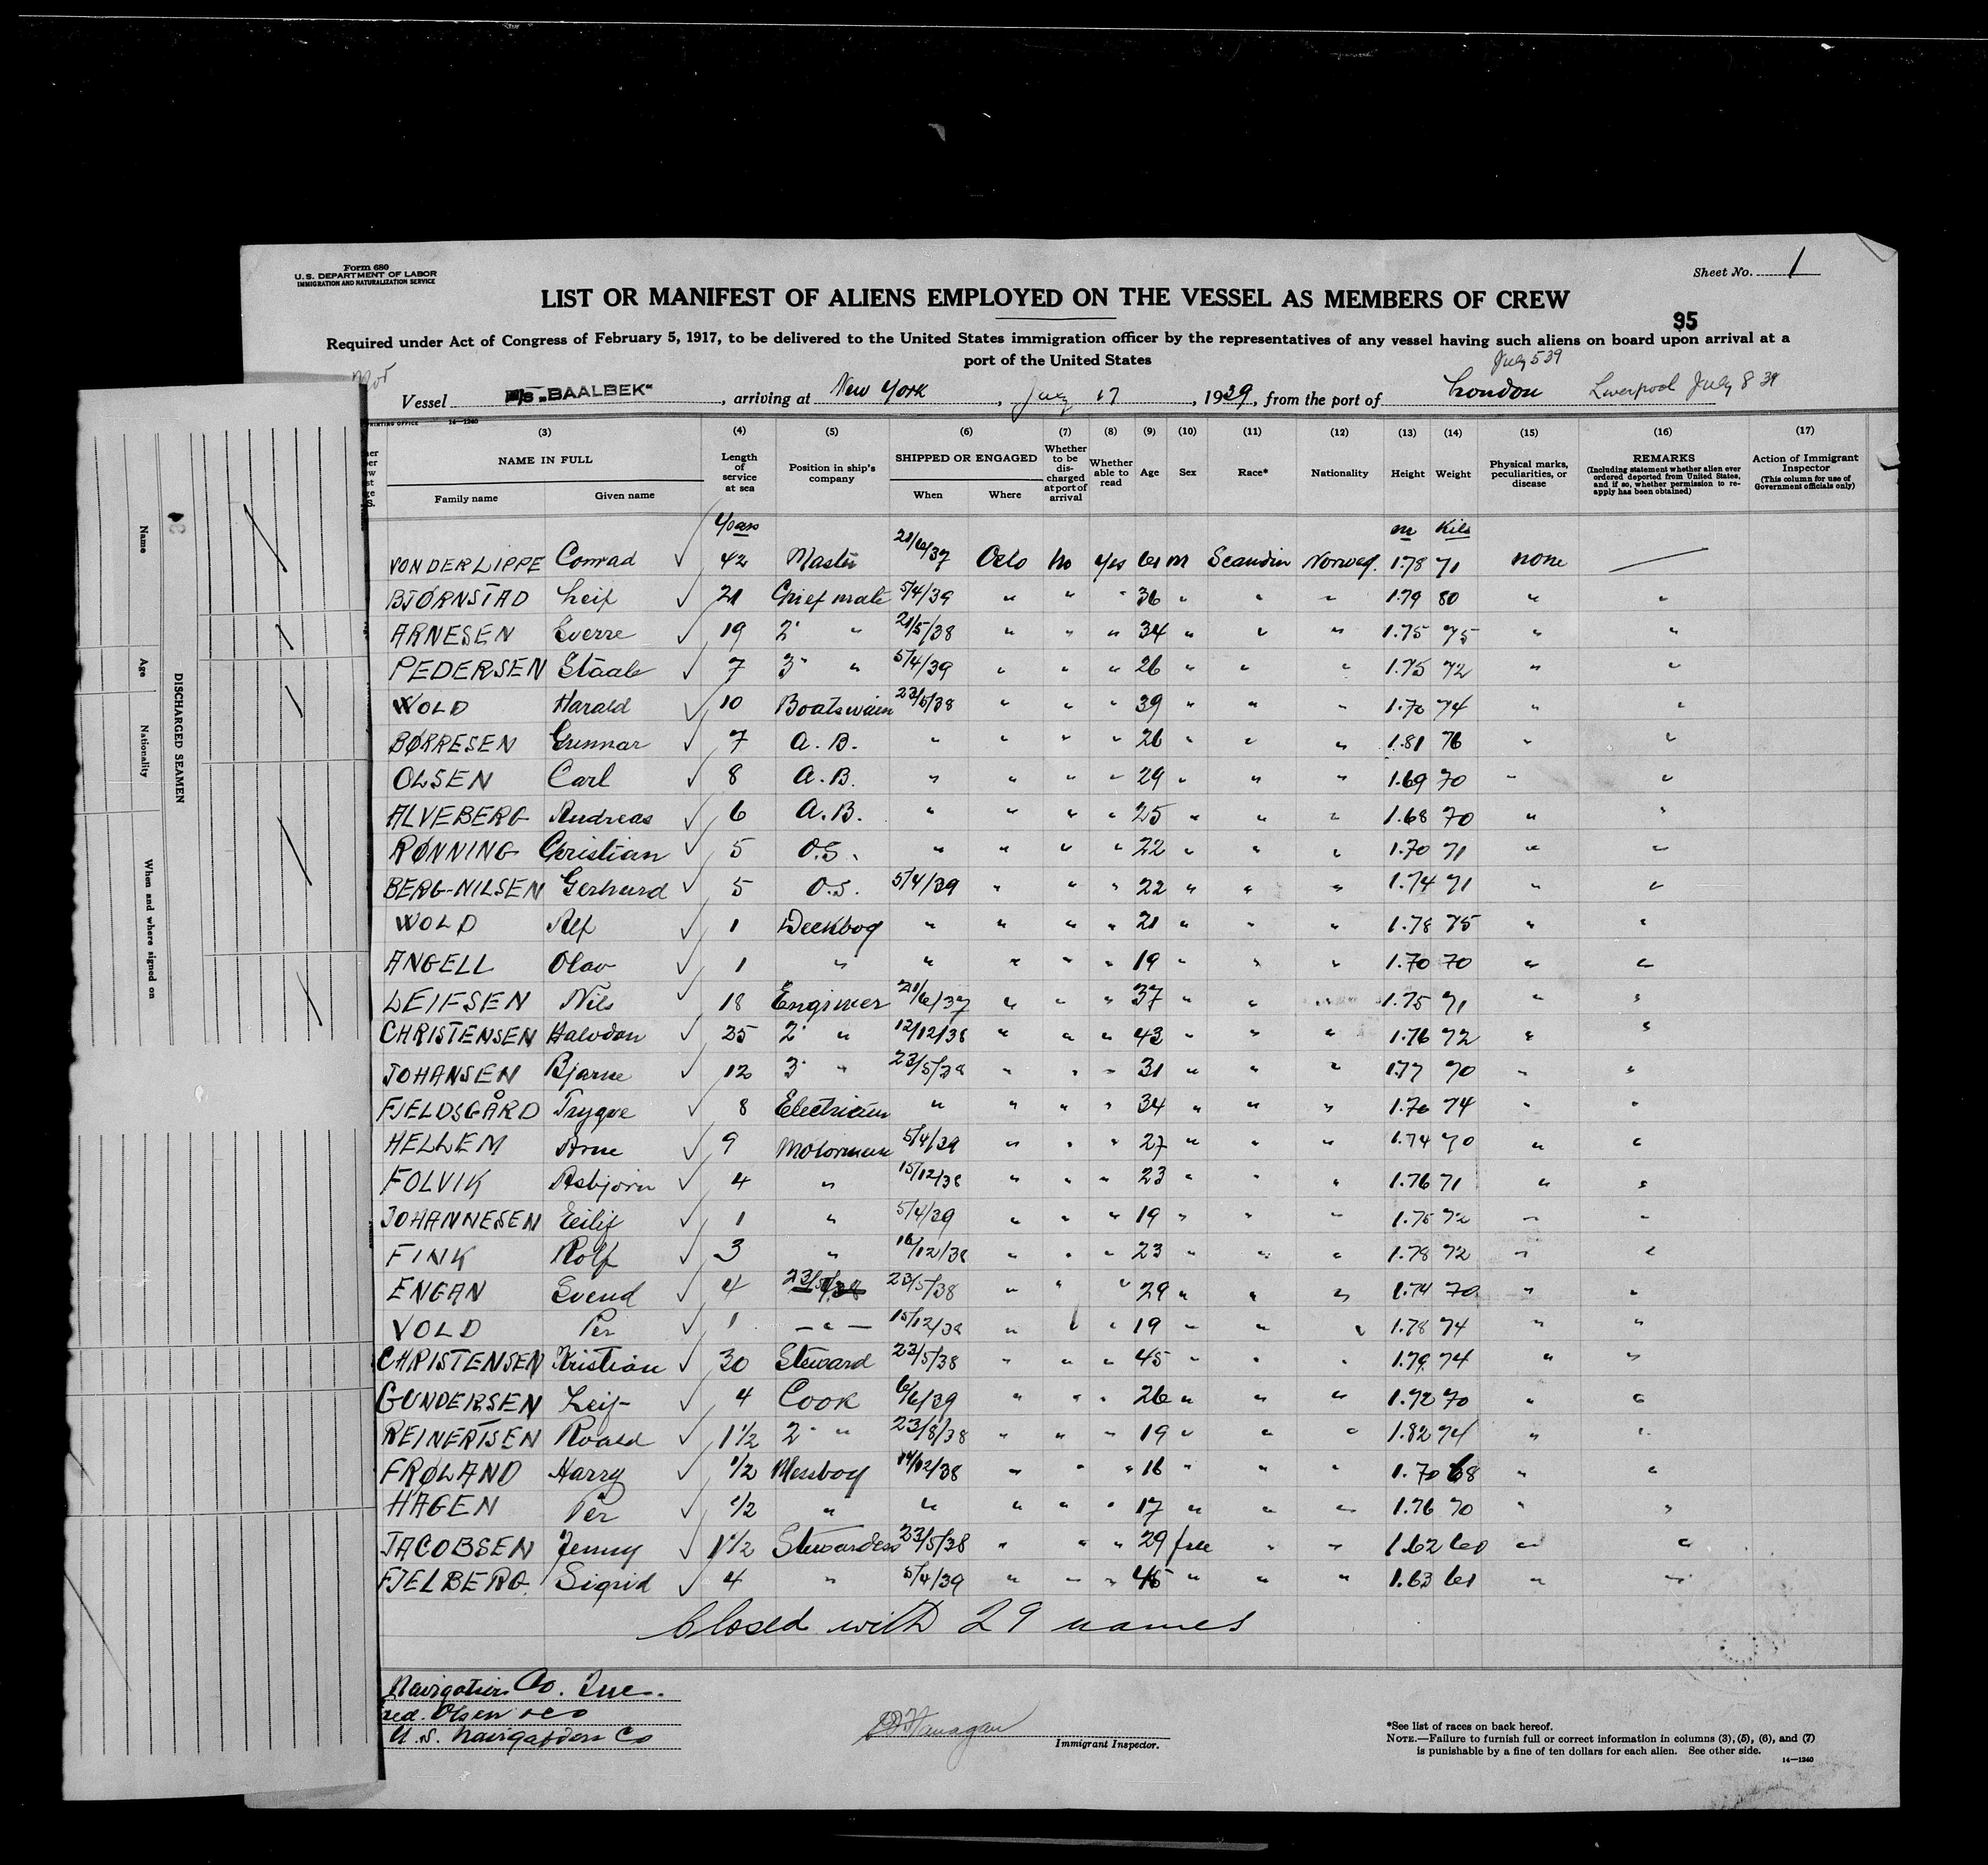 Form 680
U. S. DEPARTMENT OF LABOR
IMMIGRATION AND NATURALIZATION SERVICE
Sheet No. 1
LIST OR MANIFEST OF ALIENS EMPLOYED ON THE VESSEL AS MEMBERS OF CREW
95
Required under Act of Congress of February 5, 1917, to be delivered to the United States immigration officer by the representatives of any vessel having such aliens on board upon arrival at a
port of the United States
July 5 39
Vessel M/S „BAALBEK“, arriving at New York, July 17, 1939, from the port of London Liverpool July 8 39
PRINTING OFFICE 14—1240
(3) (4) (5) (6) (7) (8) (9) (10) (11) (12) (13) (14) (15) (16) (17)
NAME IN FULL
Family name Given name
Length of service at sea
Position in ship's company
SHIPPED OR ENGAGED
When Where
Whether to be discharged at port of arrival
Whether able to read
Age Sex Race* Nationality Height Weight
Physical marks, peculiarities, or disease
REMARKS
(Including statement whether alien ever ordered deported from United States, and if so, whether permission to reapply has been obtained)
Action of Immigrant Inspector
(This column for use of Government officials only)
Years m Kilo
VON DER LIPPE Conrad ✓ 42 Master 21/6/37 Oslo no yes 61 m Scandin Norweg. 1.78 71 none —
BJØRNSTAD Leif ✓ 21 Chief mate 5/4/39 " " " 36 " " " 1.79 80 " "
ARNESEN Sverre ✓ 19 2' " 21/5/38 " " " 34 " " " 1.75 75 " "
PEDERSEN Staale ✓ 7 3' " 5/4/39 " " " 26 " " " 1.75 72 " "
WOLD Harald ✓ 10 Boatswain 23/5/38 " " " 39 " " " 1.70 74 " "
BØRRESEN Gunnar ✓ 7 A. B. " " " " 26 " " " 1.81 76 " "
OLSEN Carl ✓ 8 A. B. " " " " 29 " " " 1.69 70 " "
ALVEBERG Andreas ✓ 6 A. B. " " " " 25 " " " 1.68 70 " "
RØNNING Christian ✓ 5 O.S. " " " " 22 " " " 1.70 71 " "
BERG-NILSEN Gerhard ✓ 5 O.S. 5/4/39 " " " 22 " " " 1.74 71 " "
WOLD Alf ✓ 1 Deckboy " " " " 21 " " " 1.78 75 " "
ANGELL Olav ✓ 1 " " " " " 19 " " " 1.70 70 " "
LEIFSEN Nils ✓ 18 Engineer 21/6/37 " " " 37 " " " 1.75 71 " "
CHRISTENSEN Halvdan ✓ 25 2' " 12/12/38 " " " 43 " " " 1.76 72 " "
JOHANSEN Bjarne ✓ 12 3' " 23/5/38 " " " 31 " " " 1.77 70 " "
FJELDSGÅRD Trygve ✓ 8 Electrician " " " " 34 " " " 1.70 74 " "
HELLEM Arne ✓ 9 Motorman 5/4/39 " " " 27 " " " 1.74 70 " "
FOLVIK Asbjørn ✓ 4 " 15/12/38 " " " 23 " " " 1.76 71 " "
JOHANNESEN Eilif ✓ 1 " 5/4/39 " " " 19 " " " 1.75 72 " "
FINK Rolf ✓ 3 " 16/12/38 " " " 23 " " " 1.78 72 " "
ENGAN Svend ✓ 4 23/5/38 23/5/38 " " " 29 " " " 1.74 70 " "
VOLD Per ✓ 1 — " — 15/12/38 " " " 19 " " " 1.78 74 " "
CHRISTENSEN Kristian ✓ 30 Steward 23/5/38 " " " 45 " " " 1.79 74 " "
GUNDERSEN Leif ✓ 4 Cook 6/6/39 " " " 26 " " " 1.72 70 " "
REINERTSEN Roald ✓ 1 1/2 2' " 23/8/38 " " " 19 " " " 1.82 74 " "
FRØLAND Harry ✓ 1/2 Messboy 14/12/38 " " " 16 " " " 1.70 68 " "
HAGEN Per ✓ 1/2 " " " " " 17 " " " 1.76 70 " "
JACOBSEN Jenny ✓ 1 1/2 Stewardess 23/5/38 " " " 29 " " 1.62 60 " "
FJELBERG Sigrid ✓ 4 " 5/4/39 " " " 45 " " " 1.63 61 " "
Closed with 29 names
Navigation Co. Inc.
red. Olsen & Co
U. S. Navigation Co
Immigrant Inspector.
*See list of races on back hereof.
NOTE.—Failure to furnish full or correct information in columns (3), (5), (6), and (7)
is punishable by a fine of ten dollars for each alien. See other side.
14—1240
DISCHARGED SEAMEN
Name Age Nationality When and where signed on